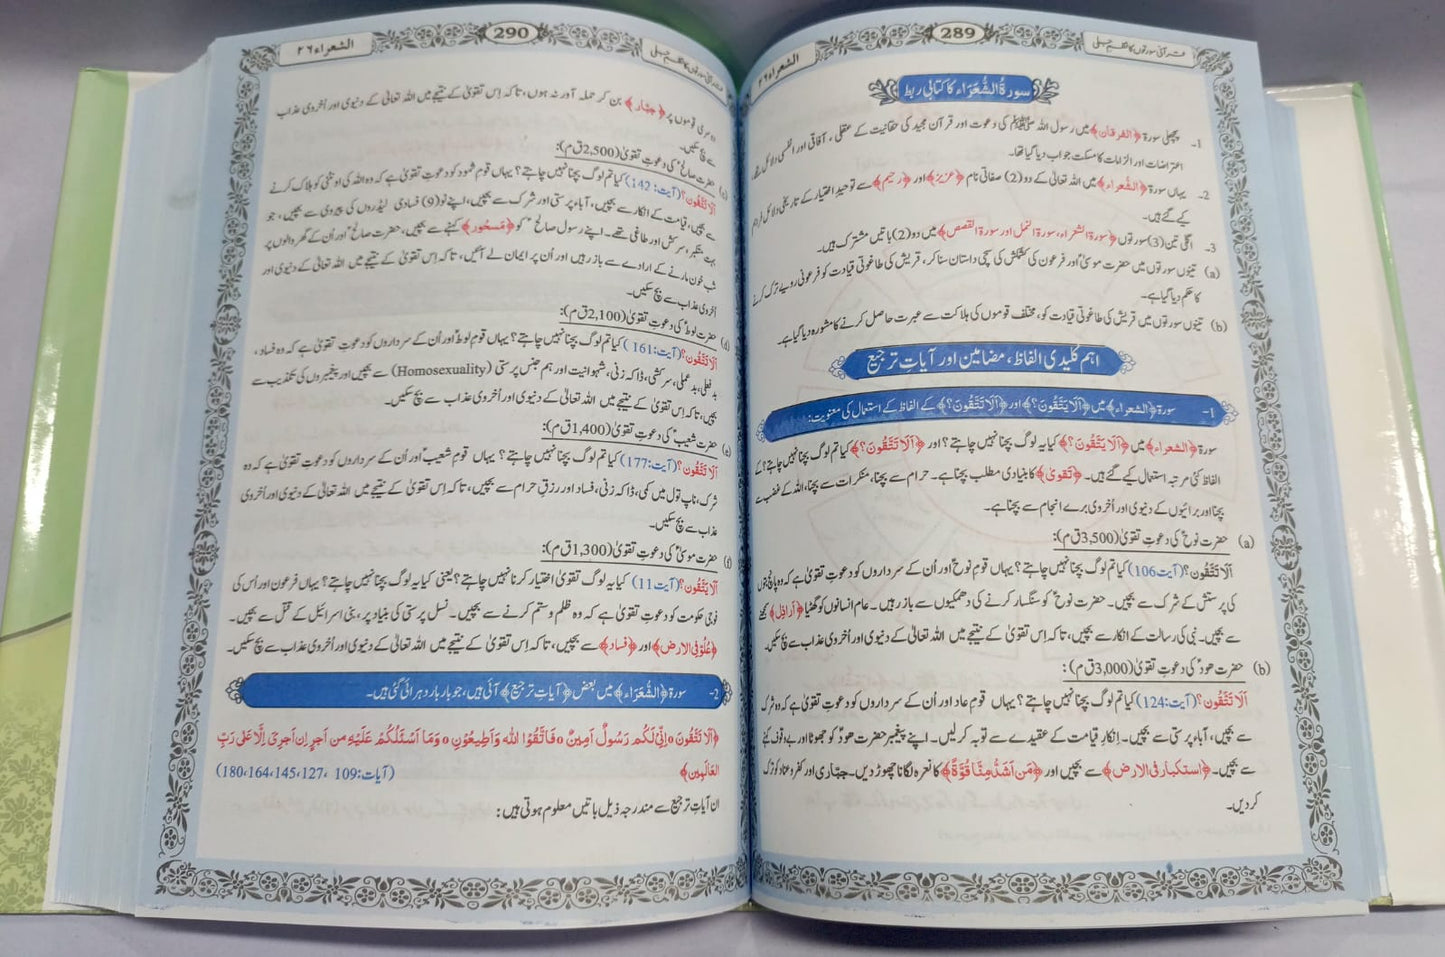 قرآنی سورتوں کا نظمِ جلی
289
الشعراء ۲۶
سورۃُ الشُّعَرَاء کا کتابی ربط
1- پچھلی سورۃ ﴿الفرقان﴾ میں رسول اللہ ﷺ کی دعوت اور قرآن مجید کی حقانیت کے عقلی ، آفاقی اور انفسی دلائل تھے،
اعتراضات اور الزامات کا مسکت جواب دیا گیا تھا۔
2- یہاں سورۃ ﴿الشُّعراء﴾ میں اللہ تعالیٰ کے دو (2) صفاتی نام ﴿عزیز﴾ اور ﴿رحیم﴾ سے توحیدِ اختیار کے تاریخی دلائل فراہم
کیے گئے ہیں۔
3- اگلی تین (3) سورتوں ﴿سورۃ الشعراء، سورۃ النمل اور سورۃ القصص﴾ میں دو (2) باتیں مشترک ہیں۔
(a) تینوں سورتوں میں حضرت موسیٰؑ اور فرعون کی کشمکش کی سچی داستان سنا کر، قریش کی طاغوتی قیادت کو فرعونی رویے ترک کرنے
کا حکم دیا گیا ہے۔
(b) تینوں سورتوں میں قریش کی طاغوتی قیادت کو، مختلف قوموں کی ہلاکت سے عبرت حاصل کرنے کا مشورہ دیا گیا ہے۔
اہم کلیدی الفاظ، مضامین اور آیاتِ ترجیع
1- سورۃ ﴿الشعراء﴾ میں ﴿اَلَا یَتَّقُونَ؟﴾ اور ﴿اَلَا تَتَّقُونَ؟﴾ کے الفاظ کے استعمال کی معنویت:
سورۃ ﴿الشعراء﴾ میں ﴿اَلَا یَتَّقُونَ؟﴾ کیا یہ لوگ بچنا نہیں چاہتے؟ اور ﴿اَلَا تَتَّقُونَ؟﴾ کیا تم لوگ بچنا نہیں چاہتے؟ کے
الفاظ کئی مرتبہ استعمال کیے گئے ہیں۔ ﴿تَقویٰ﴾ کا بنیادی مطلب بچنا ہے۔ حرام سے بچنا، منکرات سے بچنا، اللہ کے غضب سے
بچنا اور برائیوں کے دنیوی اور اُخروی برے انجام سے بچنا ہے۔
(a) حضرت نوحؑ کی دعوتِ تقویٰ (3,500 ق م):
اَلَا تَتَّقُونَ؟ (آیت 106) کیا تم لوگ بچنا نہیں چاہتے؟ یہاں قومِ نوحؑ اور اُن کے سرداروں کو دعوتِ تقویٰ ہے کہ وہ پانچ بتوں
کی پرستش کے شرک سے بچیں۔ حضرت نوحؑ کو سنگسار کرنے کی دھمکیوں سے باز رہیں۔ عام انسانوں کو گھٹیا ﴿اَراذِل﴾ کہنے
سے بچیں۔ نبی کی رسالت کے انکار سے بچیں، تاکہ اِس تقویٰ کے نتیجے میں اللہ تعالیٰ کے دنیوی اور اُخروی عذاب سے بچ سکیں۔
(b) حضرت ہودؑ کی دعوتِ تقویٰ (3,000 ق م):
اَلَا تَتَّقُونَ؟ (آیت: 124) کیا تم لوگ بچنا نہیں چاہتے؟ یہاں قومِ عاد اور اُن کے سرداروں کو دعوتِ تقویٰ ہے کہ وہ شرک
سے بچیں، آباء پرستی سے بچیں۔ انکارِ قیامت کے عقیدے سے توبہ کر لیں۔ اپنے پیغمبر حضرت ہودؑ کو جھوٹا اور بے وقوف کہنے
سے بچیں۔ ﴿استکبار فی الارض﴾ سے بچیں اور ﴿مَن اَشَدُّ مِنَّا قُوَّةً﴾ کا نعرہ لگانا چھوڑ دیں۔ جبّاری اور کفر و عناد کو ترک
کر دیں۔
قرآنی سورتوں کا نظمِ جلی
290
الشعراء ۲۶
دوسری قوموں پر ﴿جبّار﴾ بن کر حملہ آور نہ ہوں، تاکہ اِس تقویٰ کے نتیجے میں اللہ تعالیٰ کے دنیوی اور اُخروی عذاب
سے بچ سکیں۔
(c) حضرت صالحؑ کی دعوتِ تقویٰ (2,500 ق م):
اَلَا تَتَّقُونَ؟ (آیت: 142) کیا تم لوگ بچنا نہیں چاہتے؟ یہاں قومِ ثمود کو دعوتِ تقویٰ ہے کہ وہ اللہ کی اونٹنی کو ہلاک کرنے
سے بچیں، قیامت کے انکار سے بچیں، آباء پرستی اور شرک سے بچیں، اپنے نو (9) فسادی لیڈروں کی پیروی سے بچیں، جو
بہت متکبر، سرکش اور طاغی تھے۔ اپنے رسول صالحؑ کو ﴿مَسحُور﴾ کہنے سے بچیں، حضرت صالحؑ اور اُن کے گھر والوں پر
شب خون مارنے کے ارادے سے باز رہیں اور اُن پر ایمان لے آئیں، تاکہ اِس تقویٰ کے نتیجے میں اللہ تعالیٰ کے دنیوی اور
اُخروی عذاب سے بچ سکیں۔
(d) حضرت لوطؑ کی دعوتِ تقویٰ (2,100 ق م):
اَلَا تَتَّقُونَ؟ (آیت: 161) کیا تم لوگ بچنا نہیں چاہتے؟ یہاں قومِ لوطؑ اور اُن کے سرداروں کو دعوتِ تقویٰ ہے کہ وہ فساد،
بد فعلی، بد عملی، سرکشی، ڈاکہ زنی، شہوانیت اور ہم جنس پرستی (Homosexuality) سے بچیں اور پیغمبروں کی تکذیب سے
بچیں، تاکہ اِس تقویٰ کے نتیجے میں اللہ تعالیٰ کے دنیوی اور اُخروی عذاب سے بچ سکیں۔
(e) حضرت شعیبؑ کی دعوتِ تقویٰ (1,400 ق م):
اَلَا تَتَّقُونَ؟ (آیت: 177) کیا تم لوگ بچنا نہیں چاہتے؟ یہاں قومِ شعیبؑ اور اُن کے سرداروں کو دعوتِ تقویٰ ہے کہ وہ
شرک، ناپ تول میں کمی، ڈاکہ زنی، فساد اور رزقِ حرام سے بچیں، تاکہ اِس تقویٰ کے نتیجے میں اللہ تعالیٰ کے دنیوی اور اُخروی
عذاب سے بچ سکیں۔
(f) حضرت موسیٰؑ کی دعوتِ تقویٰ (1,300 ق م):
اَلَا یَتَّقُونَ؟ (آیت 11) کیا یہ لوگ تقویٰ اختیار کرنا نہیں چاہتے؟ یعنی کیا یہ لوگ بچنا نہیں چاہتے؟ یہاں فرعون اور اُس کی
فوجی حکومت کو دعوتِ تقویٰ ہے کہ وہ ظلم و ستم کرنے سے بچیں۔ نسل پرستی کی بنیاد پر، بنی اسرائیل کے قتل سے بچیں۔
﴿عُلُوّ فی الارض﴾ اور ﴿فساد﴾ سے بچیں، تاکہ اِس تقویٰ کے نتیجے میں اللہ تعالیٰ کے دنیوی اور اُخروی عذاب سے بچ سکیں۔
2- سورۃ ﴿الشُّعَرَاء﴾ میں بعض ﴿آیاتِ ترجیع﴾ آئی ہیں، جو بار بار دہرائی گئی ہیں۔
﴿اَلَا تَتَّقُونَ ٥ اِنِّی لَکُم رَسُولٌ اَمِینٌ ٥ فَاتَّقُوا اللہَ وَاَطِیعُوْنِ ٥ وَمَا اَسْئَلُکُمْ عَلَیْہِ مِن اَجرٍ اِن اَجرِیَ اِلَّا عَلٰی رَبِّ
العَالَمِین﴾ (آیات: 109 ،127،145،164،180)
ان آیاتِ ترجیع سے مندرجہ ذیل باتیں معلوم ہوتی ہیں: